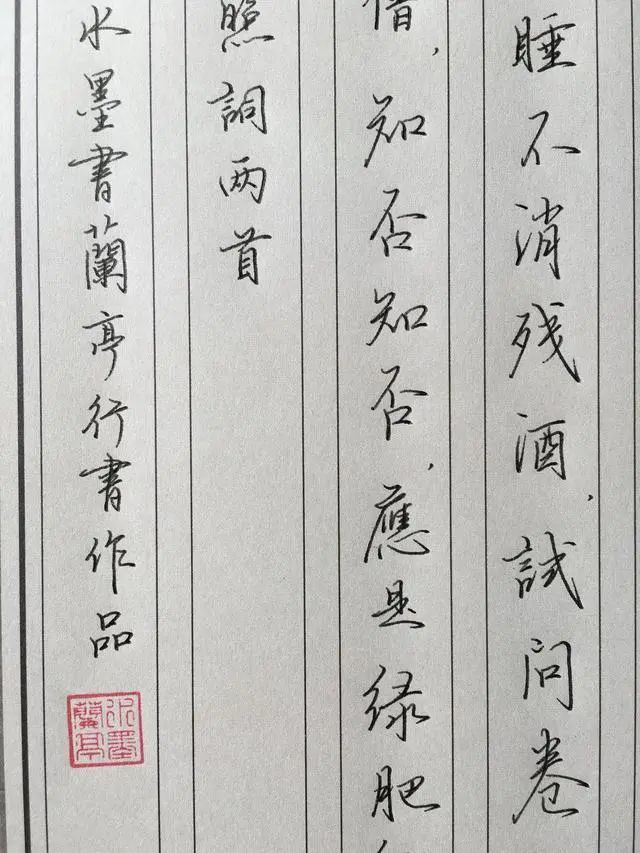 睡不消残酒，試问卷
惜，知否知否，應是绿肥
照詞两首
水墨書蘭亭行書作品
水墨蘭亭